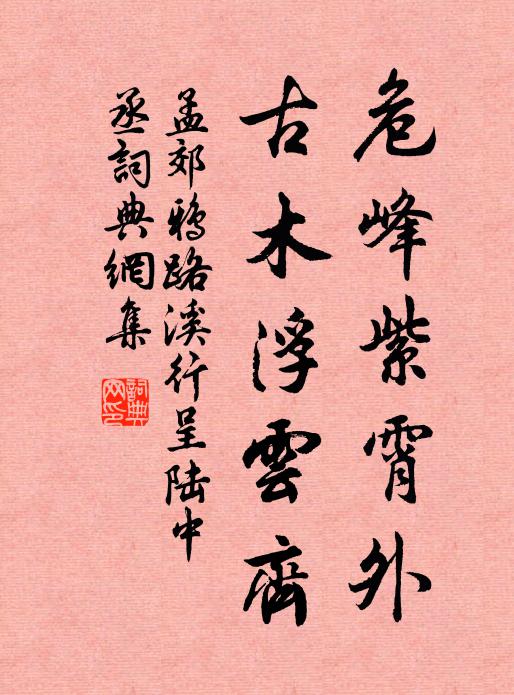 危峰紫霄外
古木浮雲齊
孟郊鴉路溪行呈陆中
丞詞典網集
詞典
网印